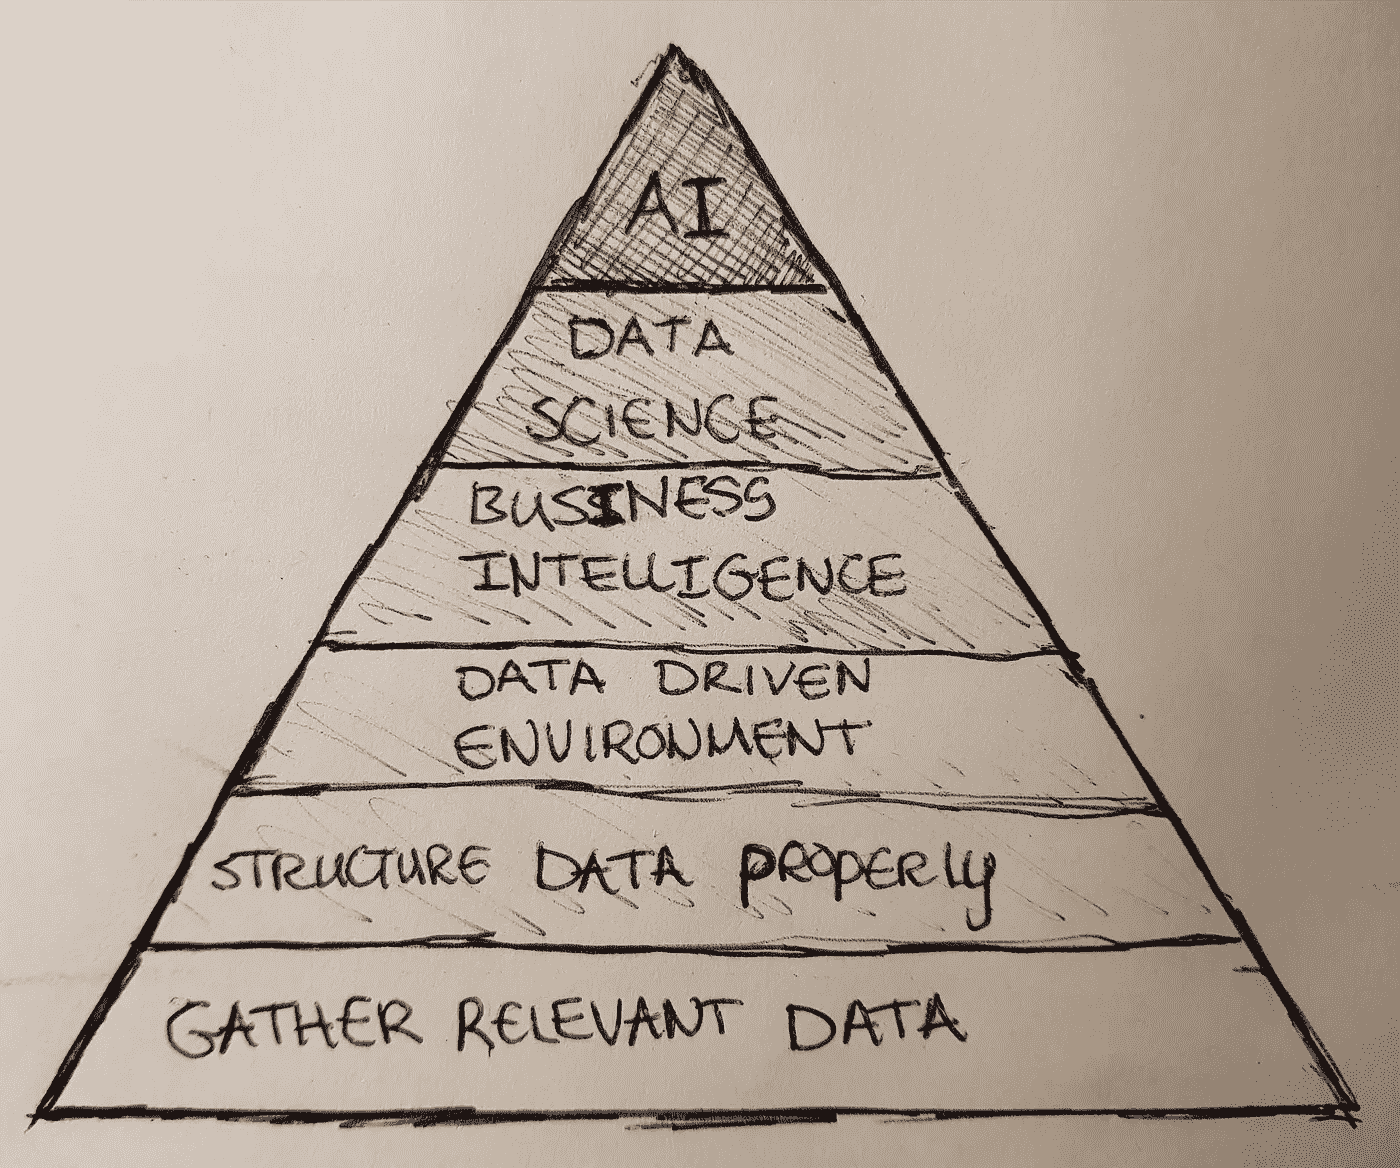 AI
DATA
SCIENCE
BUSINESS
INTELLIGENCE
DATA DRIVEN
ENVIRONMENT
STRUCTURE DATA PROPERLY
GATHER RELEVANT DATA